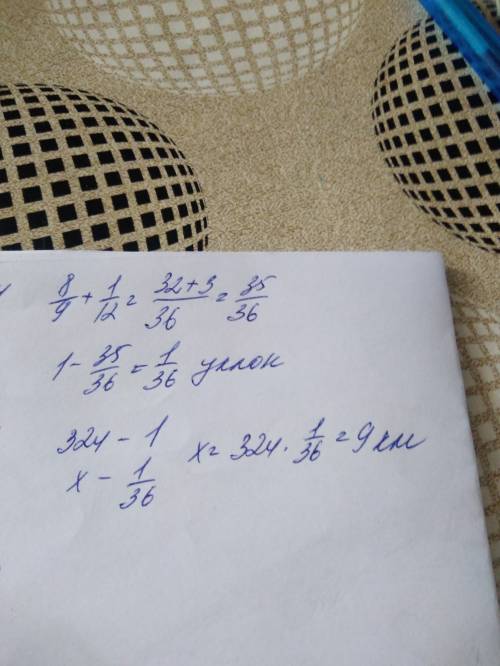 8/9 + 1/12 = 32+3/36 = 35/36
1 - 35/36 = 1/36 уклон
324 - 1
x - 1/36
x = 324 · 1/36 = 9 км